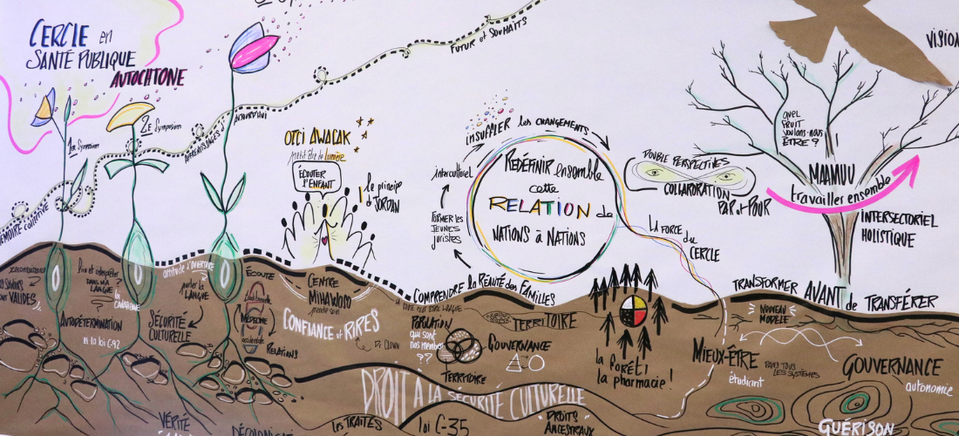 CERCLE en
SANTÉ PUBLIQUE
AUTOCHTONE
1er Symposium
2E Symposium
AUJOURD'HUI
APPRENTISSAGES
MÉMOIRE COLLECTIVE
FUTUR et SOUHAITS
OTCI AWACAK
petit être de lumière
ÉCOUTER
L'ENFANT
le principe
de JORDAN
INSUFFLER les CHANGEMENTS
interculturel
FORMER les
JEUNES
juristes
COMPRENDRE la RÉALITÉ des FAMILLES
REDÉFINIR ensemble
cette
RELATION de
NATIONS à NATIONS
DOUBLE PERSPECTIVES
COLLABORATION
PAR et POUR
LA FORCE du
CERCLE
QUEL
FRUIT
VOULONS-NOUS
ÊTRE ?
MAAMUU
travailler ensemble
INTERSECTORIEL
HOLISTIQUE
VISION
TRANSFORMER AVANT de TRANSFÉRER
VALIDES
AUTODÉTERMINATION
la loi C-92
attitude d'ouverture
parler la
LANGUE
SÉCURITÉ
CULTURELLE
ÉCOUTE
RELATIONS
CENTRE
MIHAWOSO
CONFIANCE et RIRES
Dr Clown
POPULATION
que sont
nos membres
??
TERRITOIRE
GOUVERNANCE
TERRITOIRE
la FORÊT !
la PHARMACIE !
NOUVEAU
MODÈLE
MIEUX-ÊTRE
étudiant
GOUVERNANCE
autonomie
GUÉRISON
DROIT À LA SÉCURITÉ CULTURELLE
VÉRITÉ
les TRAITÉS
loi C-35
DROITS
ANCESTRAUX